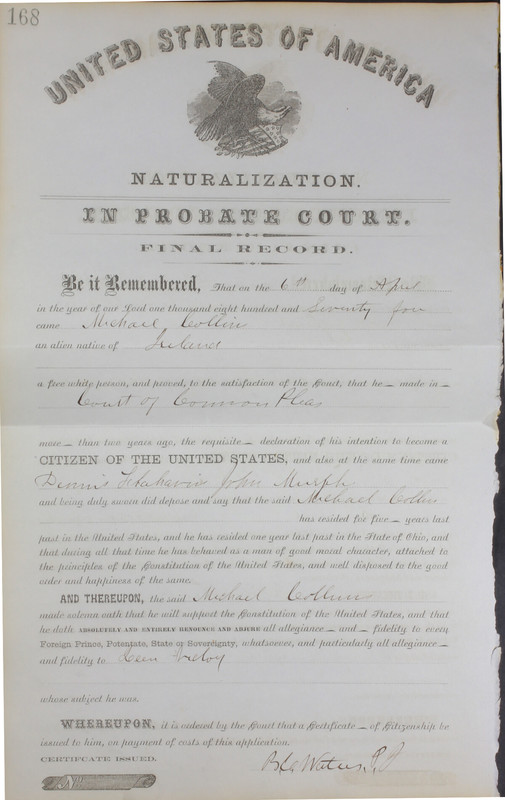 168
UNITED STATES OF AMERICA
NATURALIZATION.
IN PROBATE COURT.
FINAL RECORD.
Be it Remembered, That on the 6th day of April
in the year of our Lord one thousand eight hundred and Seventy four
came Michael Collin
an alien native of Ireland
a free white person, and proved, to the satisfaction of the Court, that he made in
Court of Common Pleas
more than two years ago, the requisite declaration of his intention to become a
CITIZEN OF THE UNITED STATES, and also at the same time came
Dennis John Murphy
and being duly sworn did depose and say that the said Michael Collin
has resided for five years last
past in the United States, and he has resided one year last past in the State of Ohio, and
that during all that time he has behaved as a man of good moral character, attached to
the principles of the Constitution of the United States, and well disposed to the good
order and happiness of the same.
AND THEREUPON, the said Michael Collins
made solemn oath that he will support the Constitution of the United States, and that
he doth ABSOLUTELY AND ENTIRELY RENOUNCE AND ABJURE all allegiance and fidelity to every
Foreign Prince, Potentate, State or Sovereignty, whatsoever, and particularly all allegiance
and fidelity to
whose subject he was.
WHEREUPON, it is ordered by the Court that a Certificate of Citizenship be
issued to him, on payment of costs of this application.
CERTIFICATE ISSUED.
Waters, P.J